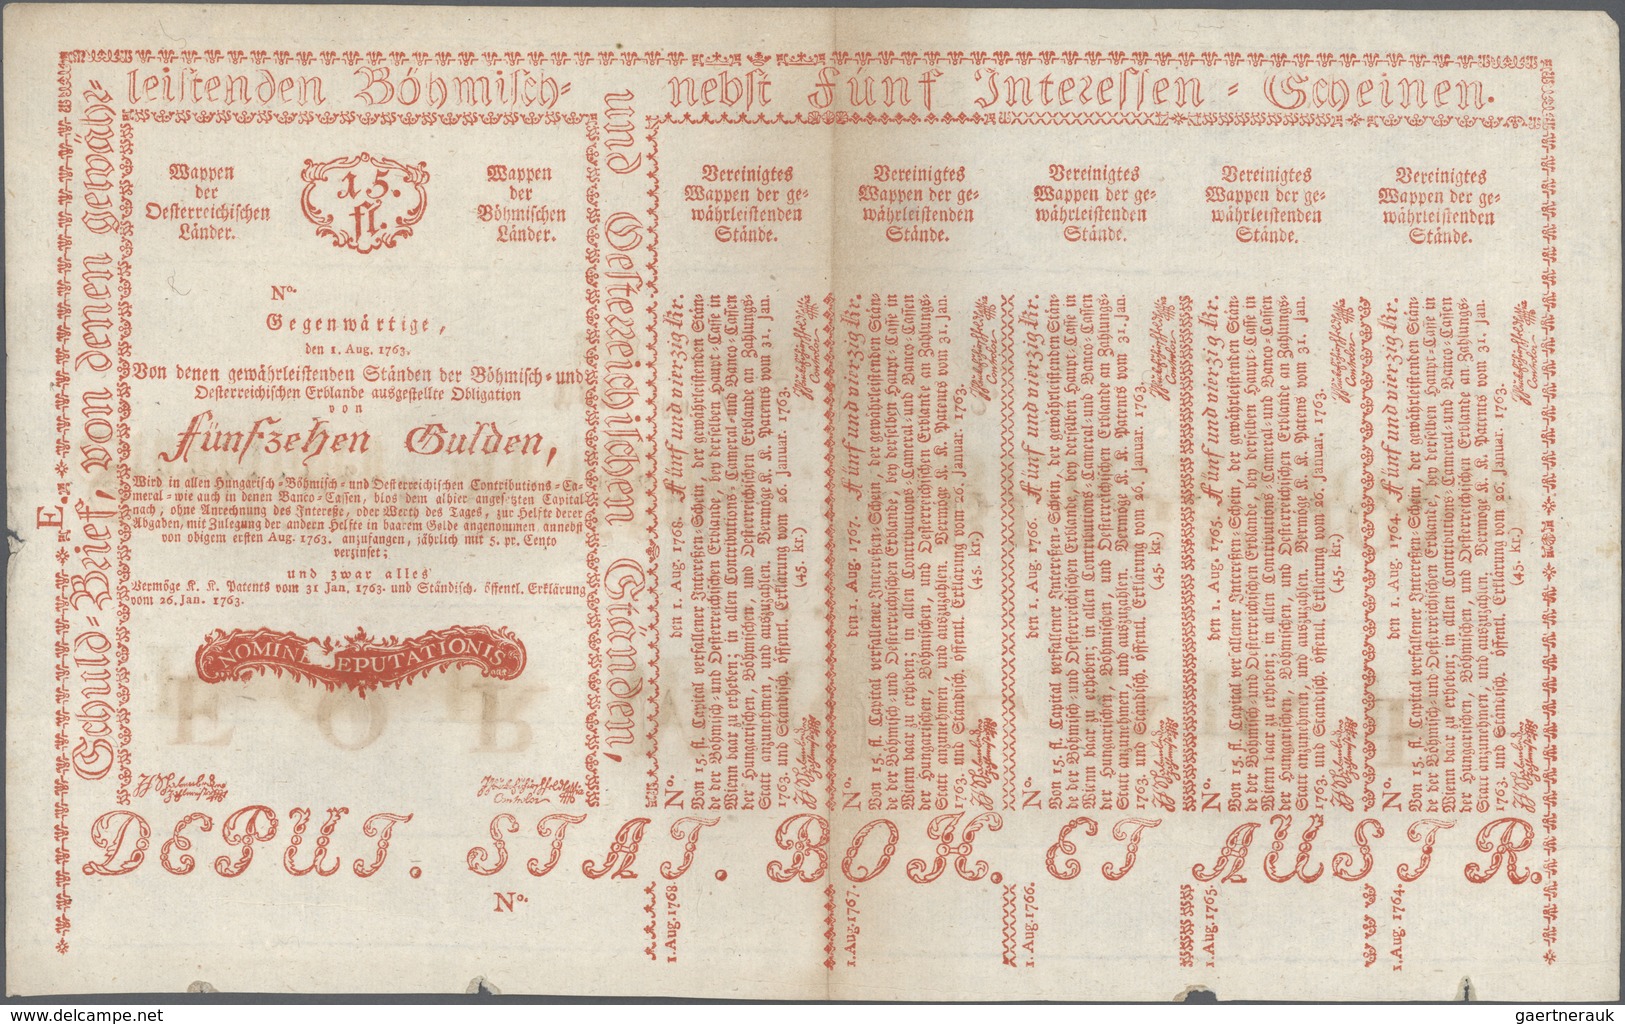 Schuld-Brief, von denen gewähr-
leistenden Böhmisch-
und Oesterreichischen Ständen,
nebst Fünf Interessen-Scheinen.
E.
Wappen
der
Oesterreichischen
Länder.
15.
fl.
Wappen
der
Böhmischen
Länder.
No.
Gegenwärtige,
den 1. Aug. 1763.
Von denen gewährleistenden Ständen der Böhmisch- und
Oesterreichischen Erblande ausgestellte Obligation
von
Fünfzehen Gulden,
Wird in allen Hungarisch- Böhmisch- und Oesterreichischen Contributions- Ca-
meral- wie auch in denen Banco-Cassen, blos dem alhier angesetzten Capital
nach, ohne Anrechnung des Interesse, oder Werth des Tages, zur Helfte derer
Abgaben, mit Zulegung der andern Helfte in baarem Gelde angenommen annebst
von obigem ersten Aug. 1763. anzufangen, jährlich mit 5. pr. Cento
verzinset;
und zwar alles
Vermöge K. K. Patents vom 31 Jan. 1763. und Ständisch. öffentl. Erklärung
vom 26. Jan. 1763.
NOMINE DEPUTATIONIS
Controlor
Vereinigtes
Wappen der ge-
währleistenden
Stände.
No. den 1. Aug. 1768. Fünf und vierzig Kr.
Von 15. fl. Capital verfallener Interßen-Schein, der gewährleistenden Stän-
de der Böhmisch- und Oesterreichischen Erblande, bey derselben Haupt-Casse in
Wienn baar zu erheben; in allen Contributions- Cameral- und Banco-Cassen
der Hungarischen, Böhmischen, und Oesterreichischen Erblande an Zahlungs-
Statt anzunehmen, und auszuzahlen. Vermöge K. K. Patents vom 31. Jan.
1763. und Ständisch. öffentl. Erklärung vom 26. Januar. 1763.
(45. kr.)
Controlor
Vereinigtes
Wappen der ge-
währleistenden
Stände.
No. den 1. Aug. 1767. Fünf und vierzig Kr.
Von 15. fl. Capital verfallener Interßen-Schein, der gewährleistenden Stän-
de der Böhmisch- und Oesterreichischen Erblande, bey derselben Haupt-Casse in
Wienn baar zu erheben; in allen Contributions- Cameral- und Banco-Cassen
der Hungarischen, Böhmischen, und Oesterreichischen Erblande an Zahlungs-
Statt anzunehmen, und auszuzahlen. Vermöge K. K. Patents vom 31. Jan.
1763. und Ständisch. öffentl. Erklärung vom 26. Januar. 1763.
(45. kr.)
Controlor
Vereinigtes
Wappen der ge-
währleistenden
Stände.
No. den 1. Aug. 1766. Fünf und vierzig Kr.
Von 15. fl. Capital verfallener Interßen-Schein, der gewährleistenden Stän-
de der Böhmisch- und Oesterreichischen Erblande, bey derselben Haupt-Casse in
Wienn baar zu erheben; in allen Contributions- Cameral- und Banco-Cassen
der Hungarischen, Böhmischen, und Oesterreichischen Erblande an Zahlungs-
Statt anzunehmen, und auszuzahlen. Vermöge K. K. Patents vom 31. Jan.
1763. und Ständisch. öffentl. Erklärung vom 26. Januar. 1763.
(45. kr.)
Controlor
Vereinigtes
Wappen der ge-
währleistenden
Stände.
No. den 1. Aug. 1765. Fünf und vierzig Kr.
Von 15. fl. Capital verfallener Interßen-Schein, der gewährleistenden Stän-
de der Böhmisch- und Oesterreichischen Erblande, bey derselben Haupt-Casse in
Wienn baar zu erheben; in allen Contributions- Cameral- und Banco-Cassen
der Hungarischen, Böhmischen, und Oesterreichischen Erblande an Zahlungs-
Statt anzunehmen, und auszuzahlen. Vermöge K. K. Patents vom 31. Jan.
1763. und Ständisch. öffentl. Erklärung vom 26. Januar. 1763.
(45. kr.)
Controlor
Vereinigtes
Wappen der ge-
währleistenden
Stände.
No. den 1. Aug. 1764. Fünf und vierzig Kr.
Von 15. fl. Capital verfallener Interßen-Schein, der gewährleistenden Stän-
de der Böhmisch- und Oesterreichischen Erblande, bey derselben Haupt-Casse in
Wienn baar zu erheben; in allen Contributions- Cameral- und Banco-Cassen
der Hungarischen, Böhmischen, und Oesterreichischen Erblande an Zahlungs-
Statt anzunehmen, und auszuzahlen. Vermöge K. K. Patents vom 31. Jan.
1763. und Ständisch. öffentl. Erklärung vom 26. Januar. 1763.
(45. kr.)
Controlor
DEPUT. STAT. BOH. ET AUSTR.
No.
1. Aug. 1768.
1. Aug. 1767.
1. Aug. 1766.
1. Aug. 1765.
1. Aug. 1764.
www.delcampe.net
gaertnerauk